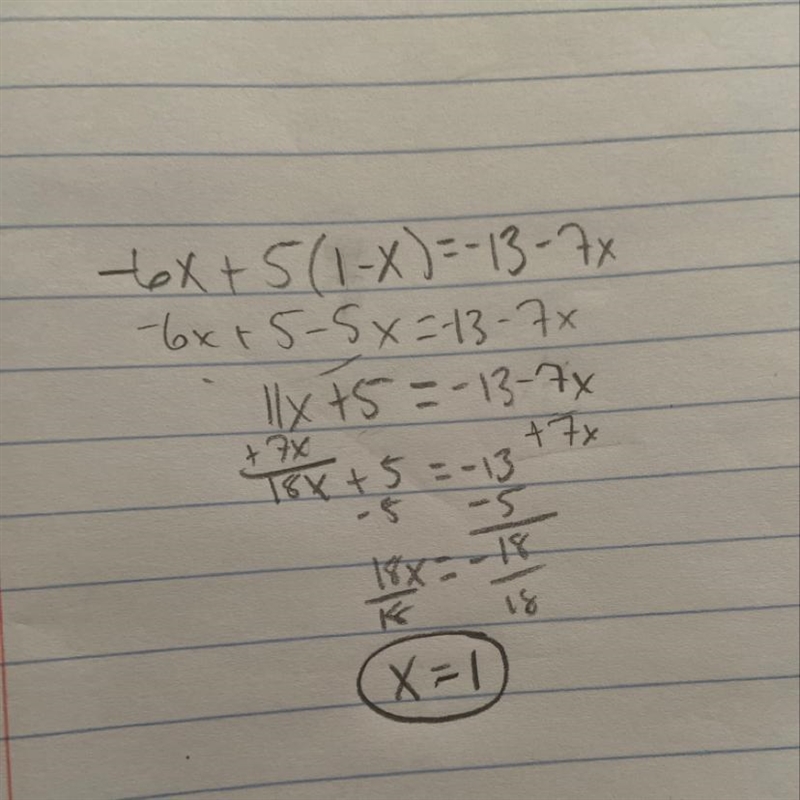 -6x + 5(1-x) = -13 - 7x
-6x + 5 - 5x = -13 - 7x
11x + 5 = -13 - 7x
+7x +7x
18x + 5 = -13
-5 -5
18x = -18
18 18
x = 1